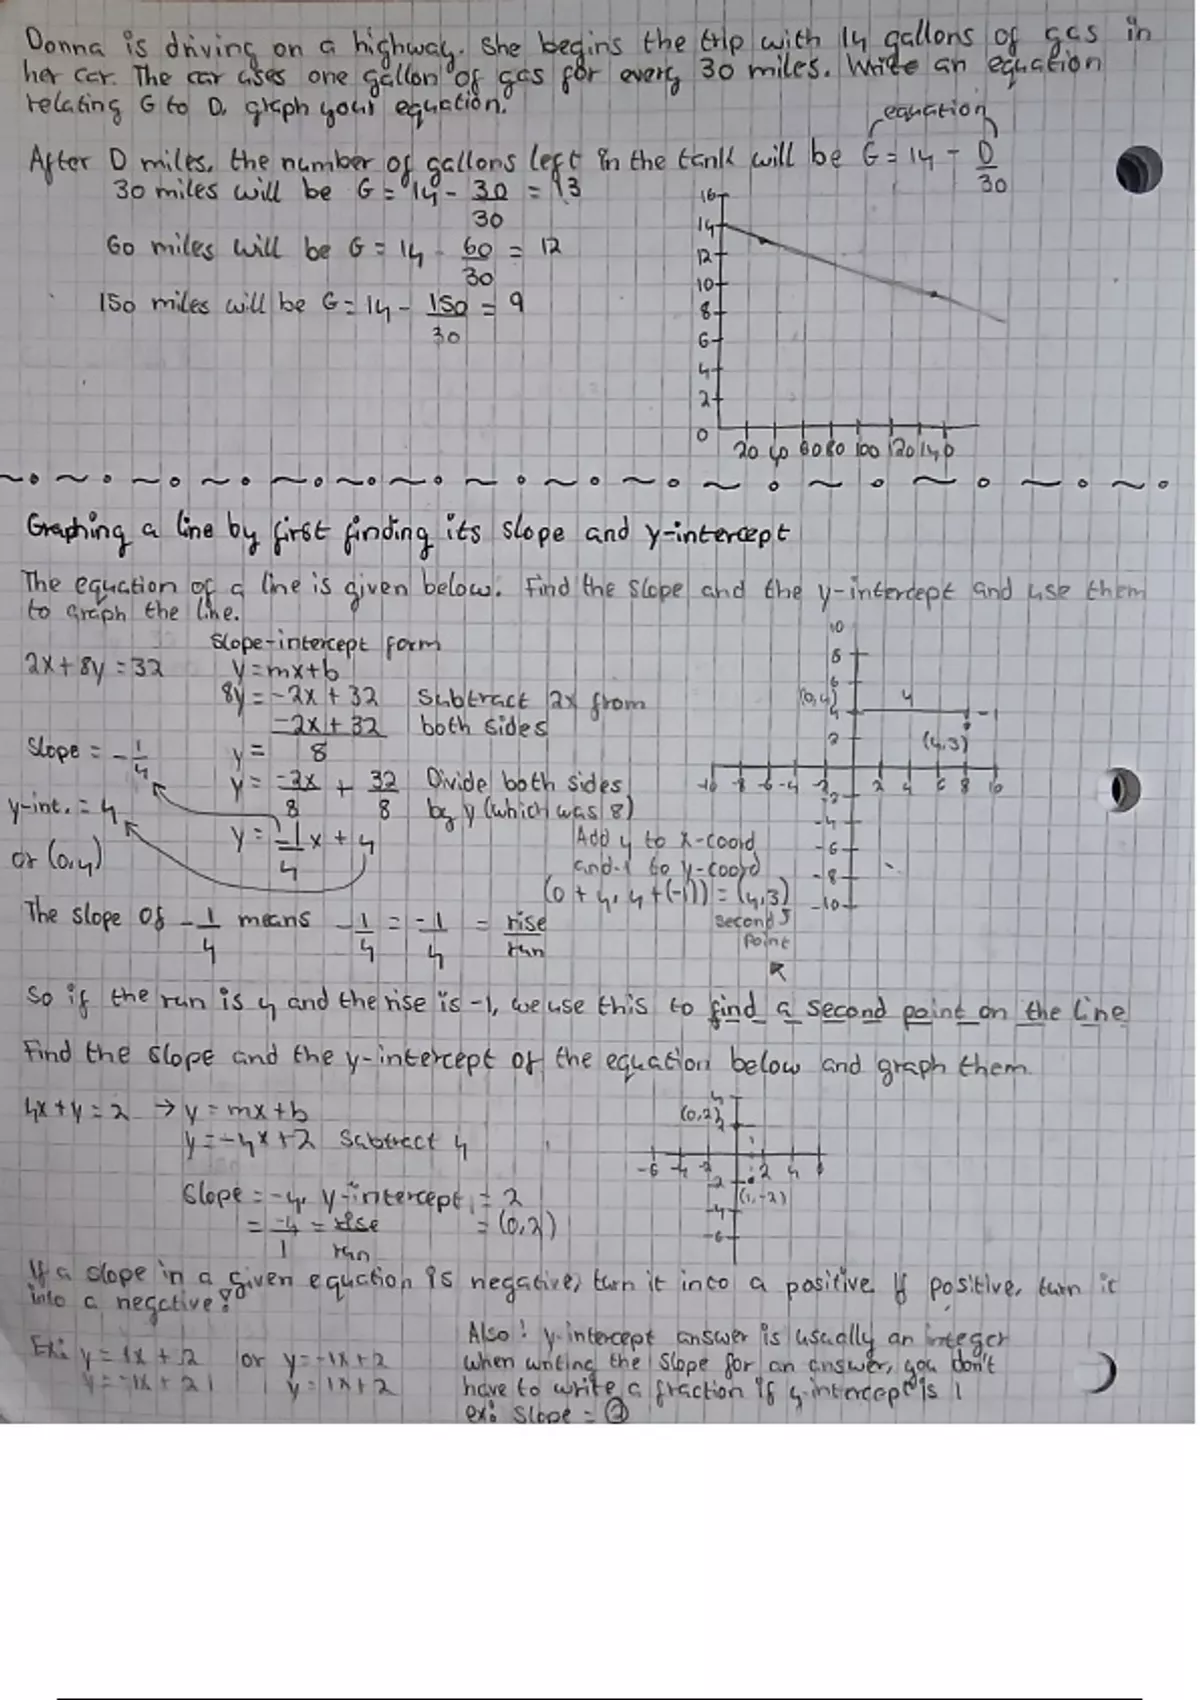 Donna is driving on a highway. She begins the trip with 14 gallons of gas in
her car. The car uses one gallon of gas for every 30 miles. Write an equation
relating G to D. graph your equation.
equation
After D miles, the number of gallons left in the tank will be G = 14 - D/30
30 miles will be G = 14 - 30/30 = 13
60 miles will be G = 14 - 60/30 = 12
150 miles will be G = 14 - 150/30 = 9
16
14
12
10
8
6
4
2
0
20 40 60 80 100 120 140
Graphing a line by first finding its slope and y-intercept
The equation of a line is given below. Find the slope and the y-intercept and use them
to graph the line.
Slope-intercept form
2x + 8y = 32 y = mx + b
8y = -2x + 32 Subtract 2x from
-2x + 32 both sides
y = 8
Slope = -1/4
y = -2x/8 + 32/8 Divide both sides
by y (which was 8)
y-int. = 4
or (0,4)
y = -1/4 x + 4
Add 4 to x-coord
and -1 to y-coord
(0 + 4, 4 + (-1)) = (4,3)
second
point
10
8
6
(0,4) 4 4 -1
2 (4,3)
-10 -8 -6 -4 -2 2 4 6 8 10
-2
-4
-6
-8
-10
The slope of -1/4 means -1/4 = -1/4 = rise/run
So if the run is 4 and the rise is -1, we use this to find a second point on the line
Find the slope and the y-intercept of the equation below and graph them.
4x + y = 2 → y = mx + b
y = -4x + 2 Subtract 4
Slope = -4, y-intercept = 2
= -4/1 = rise/run = (0,2)
4
(0,2) 2
-6 -4 -2 2 4 6
-2
(1,-2)
-4
-6
If a slope in a given equation is negative, turn it into a positive If positive, turn it
into a negative!
Ex: y = 1x + 2 or y = -1x + 2
y = -1x + 2 y = 1x + 2
Also! y-intercept answer is usually an integer
when writing the slope for an answer, you don't
have to write a fraction if y-intercept is 1
ex: Slope = 2